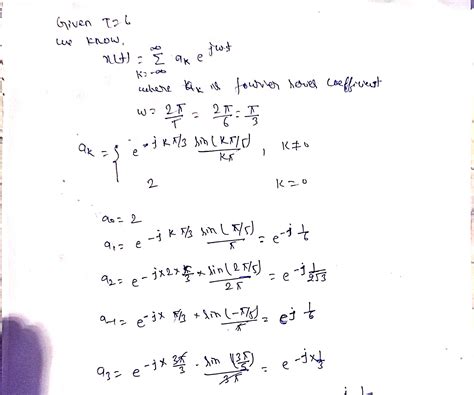 Given T=6
we know,
x(t) = ∞ Σ k=-∞ ak e^jωt
where ak is fourier series coefficient
ω = 2π/T = 2π/6 = π/3
ak = { e^-jkπ/3 sin(kπ/5)/kπ , k≠0
2 k=0
a0 = 2
a1 = e^-jkπ/3 sin(π/5)/π = e^-j 1/6
a2 = e^-j×2×π/3 × sin(2π/5)/2π = e^-j 1/2√3
a-1 = e^-j× π/3 × sin(-π/5)/π = e^j 1/6
a3 = e^-j× 3π/3 . sin(3π/5)/3π = e^-j× 1/3